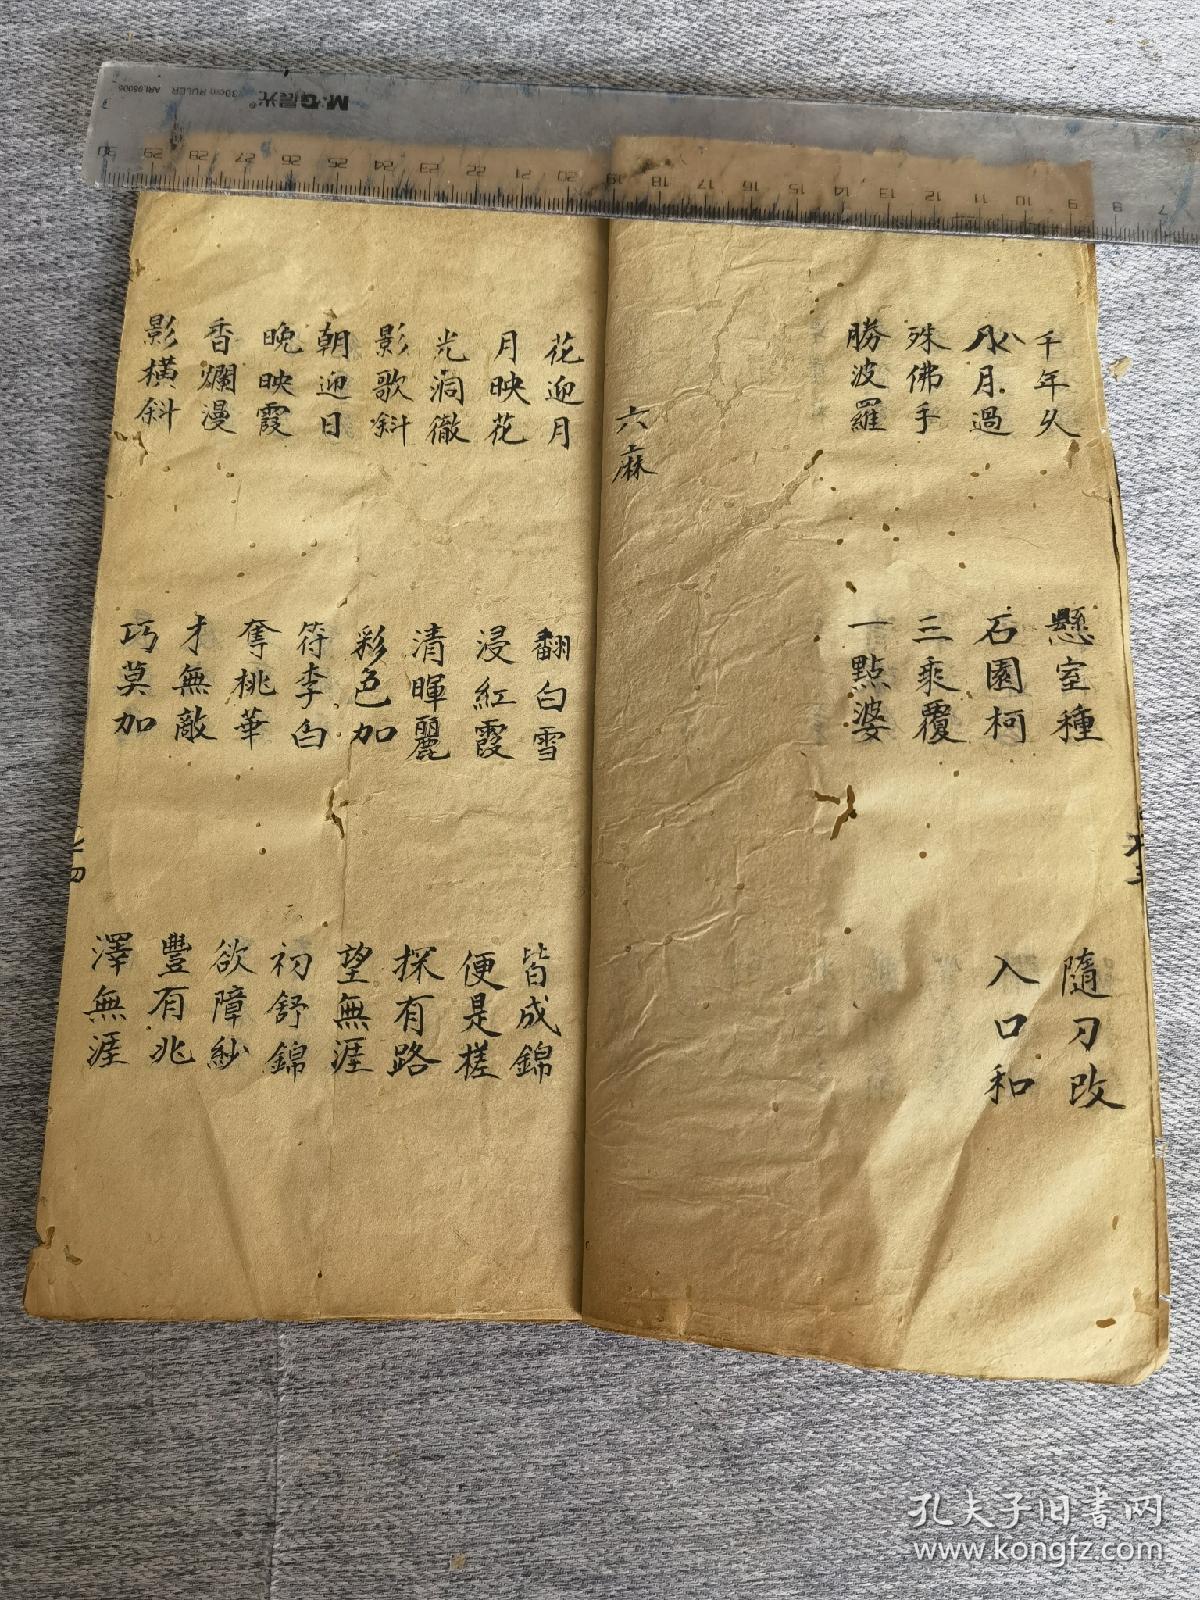 千年久
八月過
殊佛手
勝波羅
懸室種
石園柯
三乘覆
一點婆
隨刀改
入口和
六麻
花迎月
月映花
光洞徹
影歌斜
朝迎日
晚映霞
香爛漫
影橫斜
翻白雪
浸紅霞
清暉麗
彩色加
符李白
奪桃華
才無敵
巧莫加
皆成錦
便是槎
探有路
望無涯
初舒錦
欲障紗
豐有兆
澤無涯
M&G晨光
30cm RULER ARL96006
30 29 28 27 26 25 24 23 22 21 20 19 18 17 16 15 14 13 12 11 10 9 8 7
孔夫子旧书网
www.kongfz.com